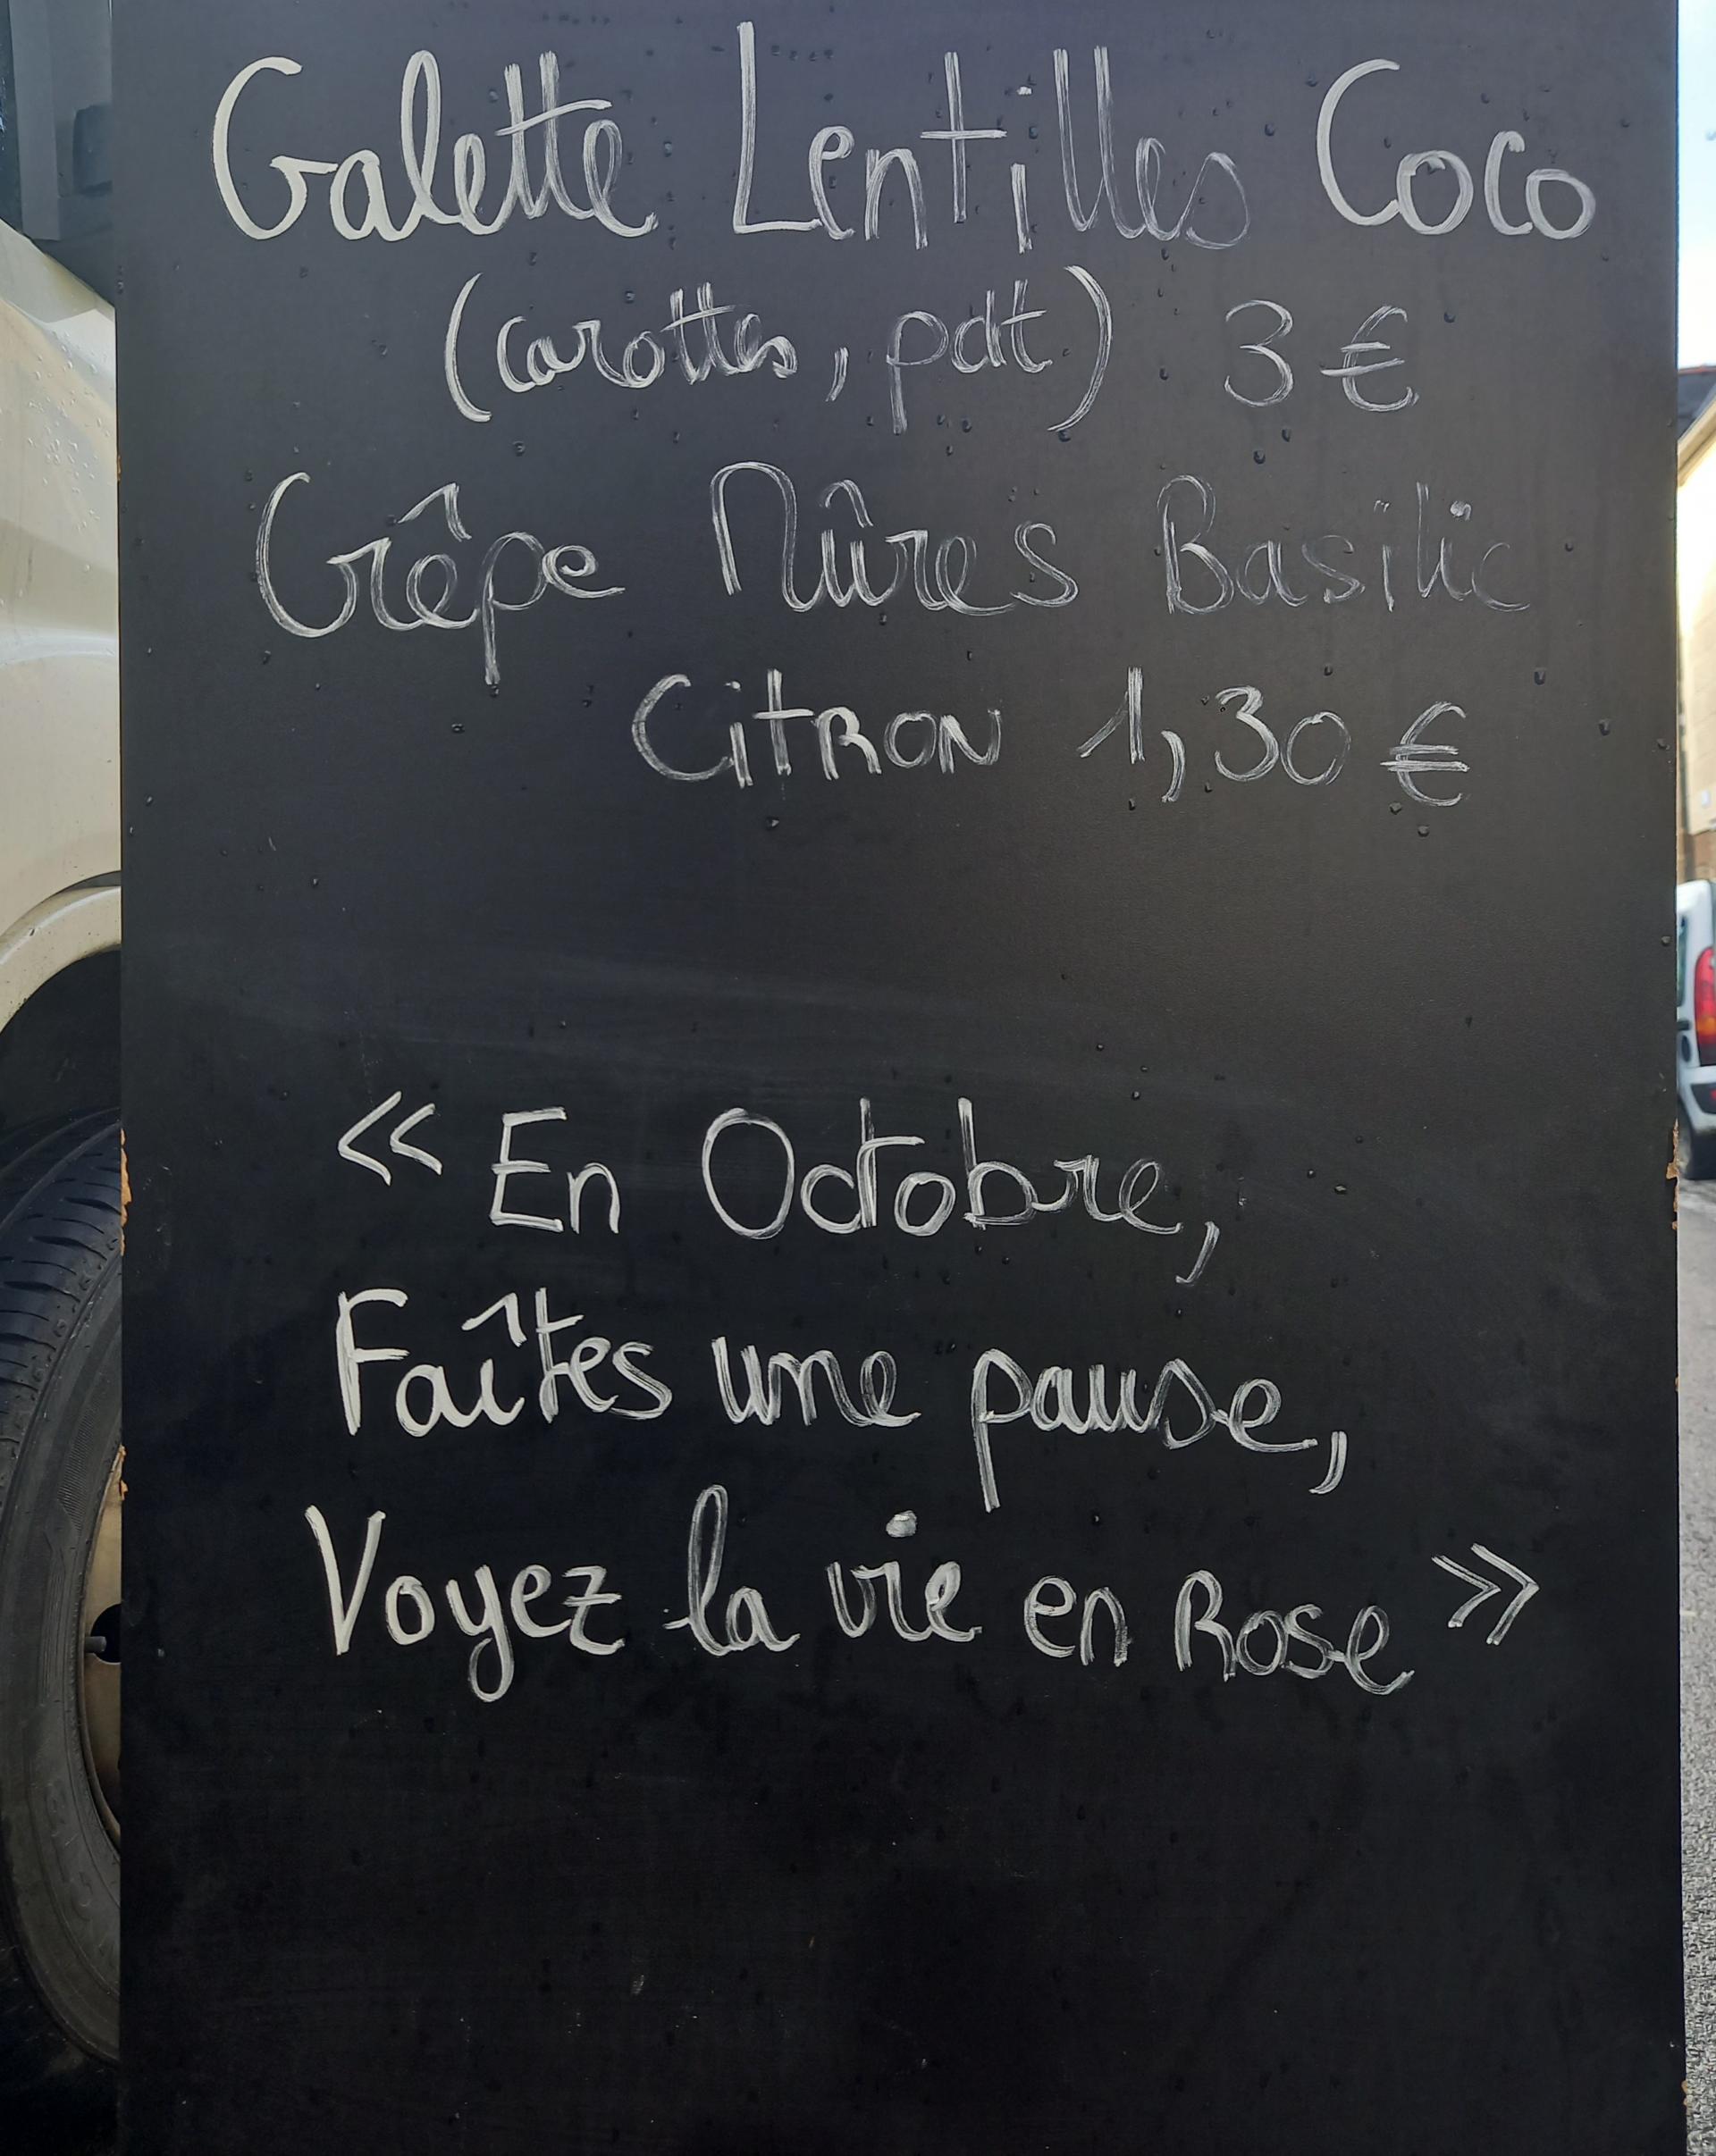 Galette Lentilles Coco
(carottes, pdt) 3 €
Crêpe Mûres Basilic
Citron 1,30 €
« En Octobre,
Faîtes une pause,
Voyez la vie en Rose »